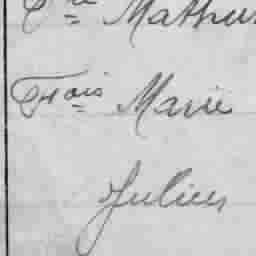 Mathur
Frois Marie
Julien